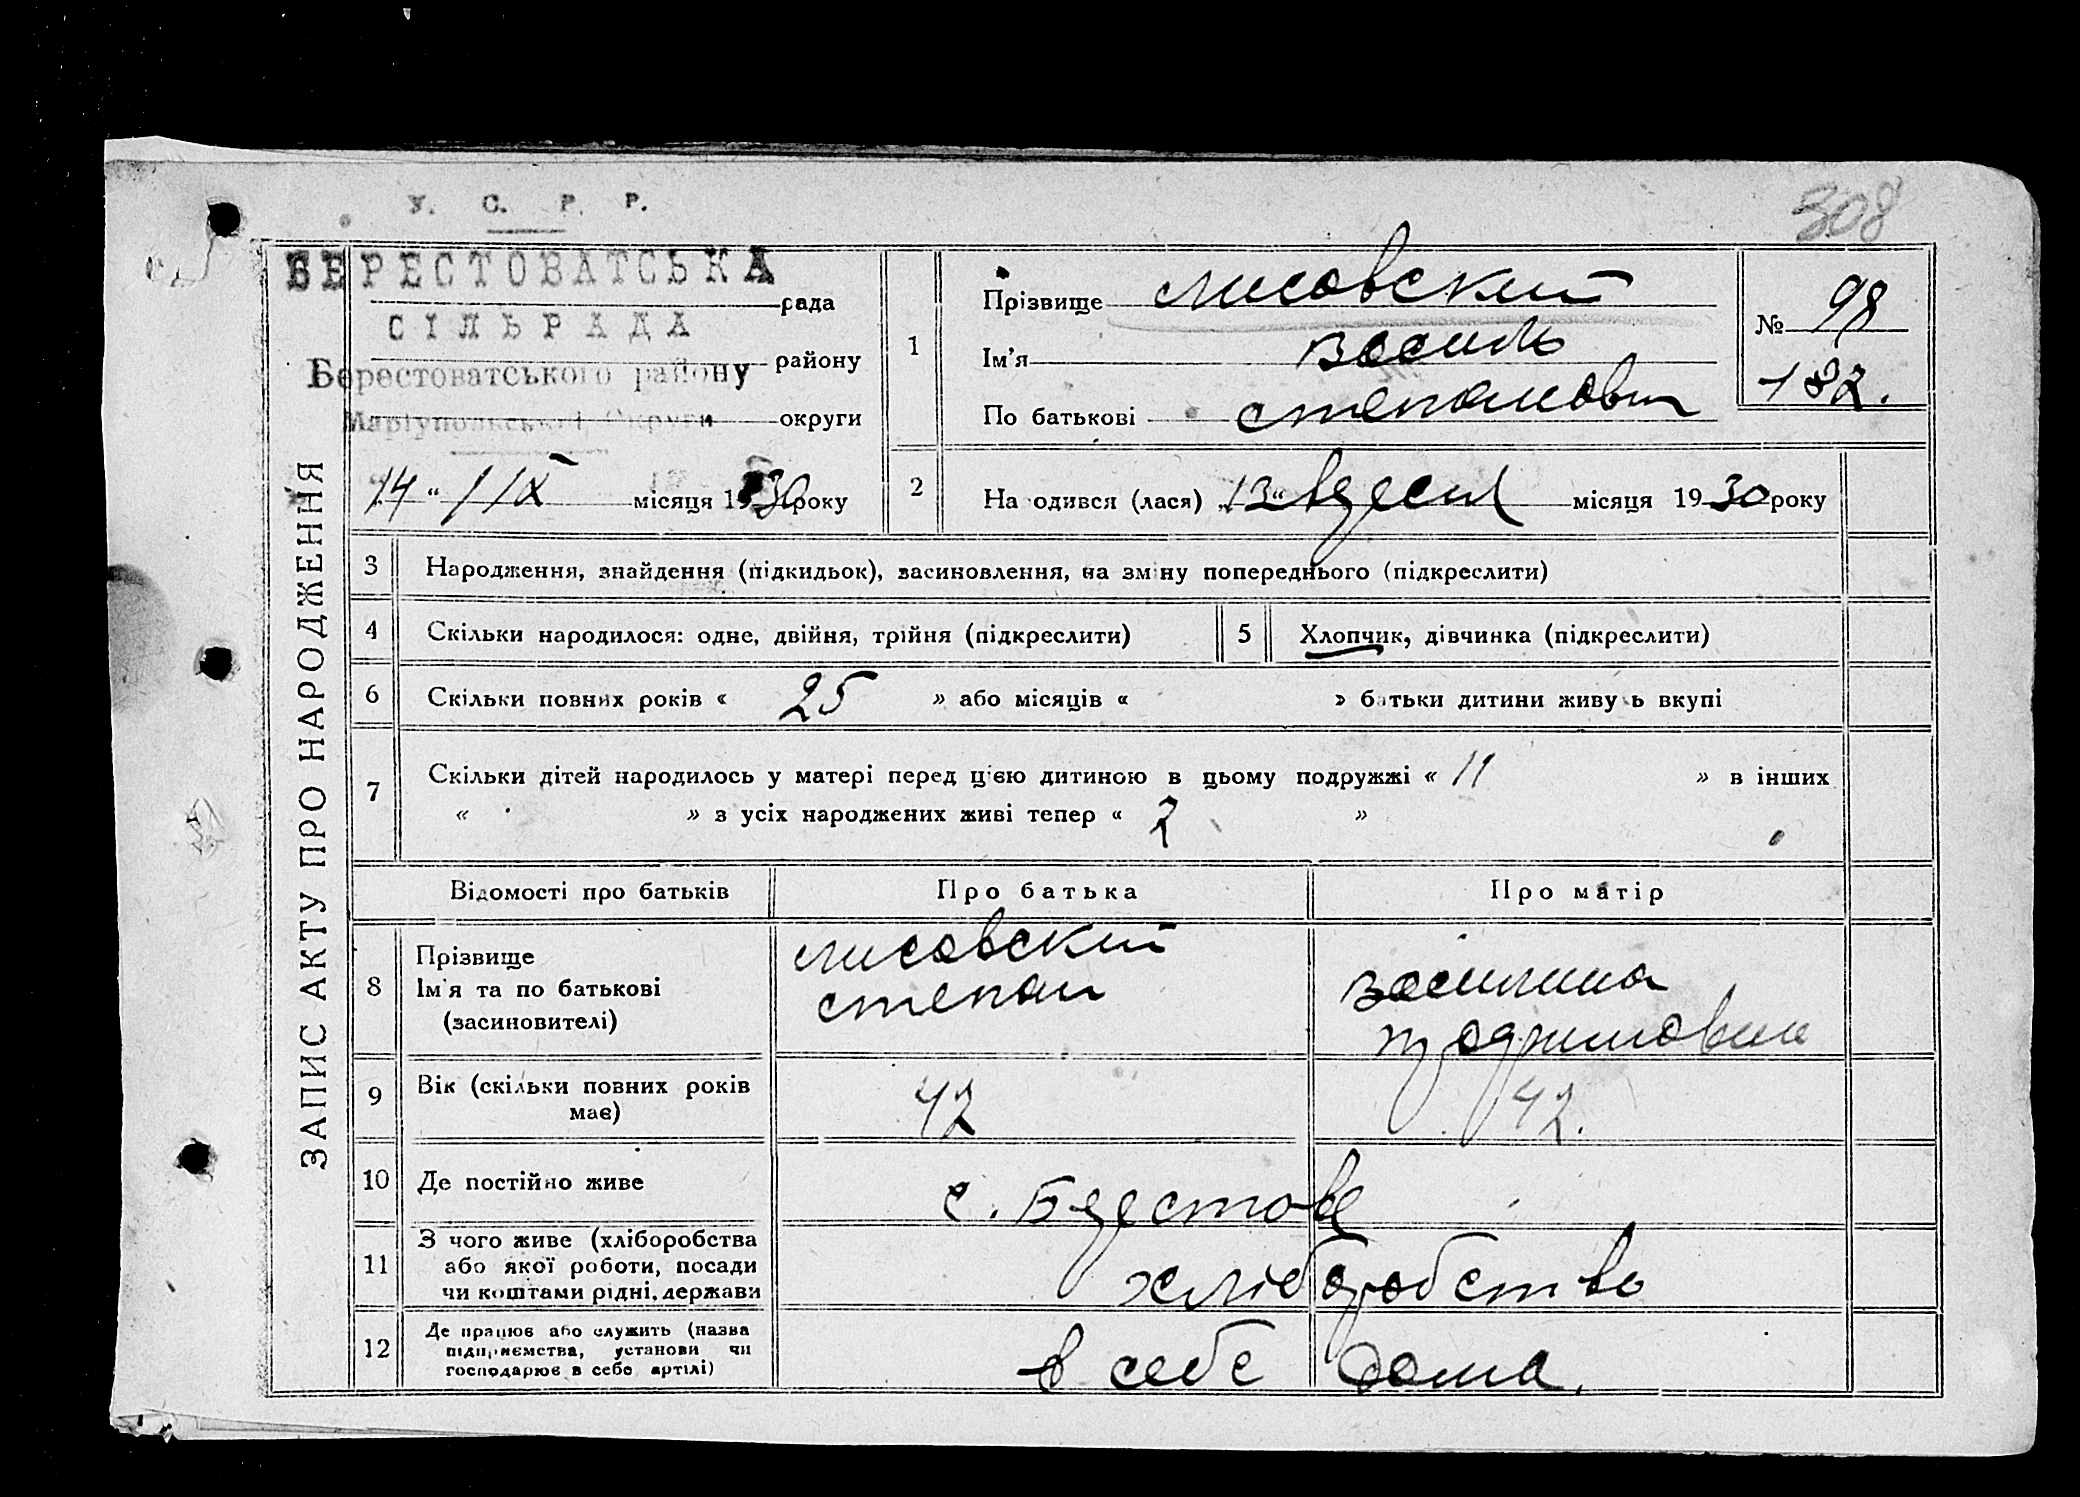 У. С. Р. Р.
308
БЕРЕСТОВАТСЬКА
рада
СІЛЬРАДА
району
Берестоватського району
округи
Маріупольської Округи
14 " / IX місяця 1930 року
ЗАПИС АКТУ ПРО НАРОДЖЕННЯ
1
Прізвище лисовский
Ім'я Василь
По батькові степанович
№ 98
182.
2 На одився (лася) „13" вересня місяця 1930 року
3 Народження, знайдення (підкидьок), засиновлення, на зміну попереднього (підкреслити)
4 Скільки народилося: одне, двійня, трійня (підкреслити)
5 Хлопчик, дівчинка (підкреслити)
6 Скільки повних років « 25 » або місяців « » батьки дитини живуть вкупі
7 Скільки дітей народилось у матері перед цією дитиною в цьому подружжі « 11 » в інших
« » з усіх народжених живі тепер « 2 »
Відомості про батьків Про батька Про матір
8 Прізвище
Ім'я та по батькові
(засиновителі)
лисовский
степан
Василина
9 Вік (скільки повних років
має)
42 42.
10 Де постійно живе с. Берестове
11 З чого живе (хліборобства
або якої роботи, посади
чи коштами рідні, держави
хліборобство
12 Де працює або служить (назва
підприємства, установи чи
господарює в себе артілі)
в себе дома.